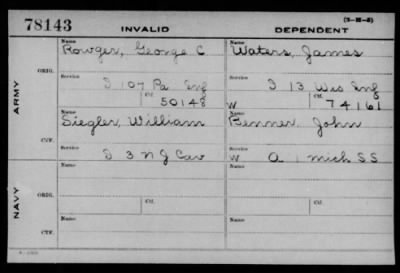 78143 INVALID DEPENDENT (3-M-5)
Name Name
Rowger, George C. Waters, James
ORIG. Service Service
D 107 Pa Inf I 13 Wis Inf
ARMY Ctf. Ctf.
50148 W 74161
Name Name
Siegler, William Benner, John
CTF. Service Service
D 3 N J Cav W A 1 Mich S S
Name Name
NAVY ORIG. Service Service
Ctf. Ctf.
Name Name
CTF. Service Service